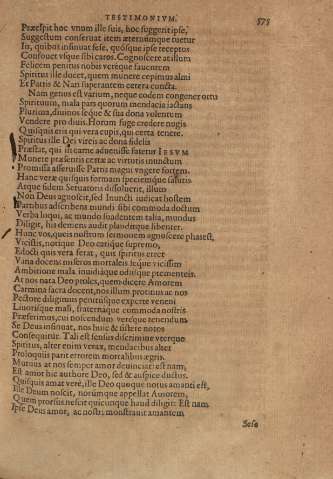 TESTIMONIVM. 575
Præscipit hoc vnum ille suis, hoc suggerit ipse,
Suggestum conseruat item æternumque tuetur
In, quibus insinuat sese, quosque ipse receptos
Confouet vsque sibi caros. Cognoscere at illum
Felicem penitus nobis veréque fauentem
Spiritus ille docet, quem munere cepimus almi
Et Patris & Nati superantem cetera cuncta.
Nam genus est varium, neque eodem congener ortu
Spirituum, mala pars quorum mendacia iactans
Plurima, diuinos seque & sua dona volentum
Vendere pro diuis. Horum fuge credere nugis
Quisquis eris qui vera cupis, qui certa tenere.
Spiritus ille Dei veri est ac dona fidelis
Præstat, qui in carne aduenisse fatetur IESVM
Munere præsentis certæ ac virtutis inunctum
Promissa asseruisse Patris magni vngere fortem.
Hanc veræ quisquis formam speciemque salutis
Atque fidem Seruatoris dissoluerit, illum
Non Deus agnoscet, sed Inuncti iudicat hostem
Partibus adscribens mundi sibi commoda doctum
Verba loqui, ac mundo suadentem talia, mundus
Diligit, his demens audit plauditque libenter.
Hunc vos, queis nostrum sermonem agnoscere phas est,
Vicistis, notique Deo carique supremo,
Edocti quis vera ferat, quis spiritus error
Vana docens miseros mortaleis seque vicissim
Ambitione mala inuidiáque odiisque prementeis.
At nos nata Deo proles, quem dicere Amorem
Carmina sacra docent, nos illum protinus ac nos
Pectore diligimus penitusque experte veneni
Liuorisque mali, fraternaque commoda nostris
Præferimus, cui noscendum veréque tenendum
Se Deus insinuat, nos huic & sistere notos
Consequitur. Tali est sensus discrimine vterque
Spiritus, alter enim verax, mendacibus alter
Proloquiis parit errorem mortalibus ægris.
Mutuus at nos semper amor deuinciat: est nam,
Est amor hic authore Deo, sed & auspice ductus.
Quisquis amat veré, ille Deo quoque notus amanti est,
Ille Deum noscit, notumque appellat Amorem,
Quem prorsus nescit quicunque haud diligit: Est nam
Ipse Deus amor, ac nobis monstrauit amantem
Sese